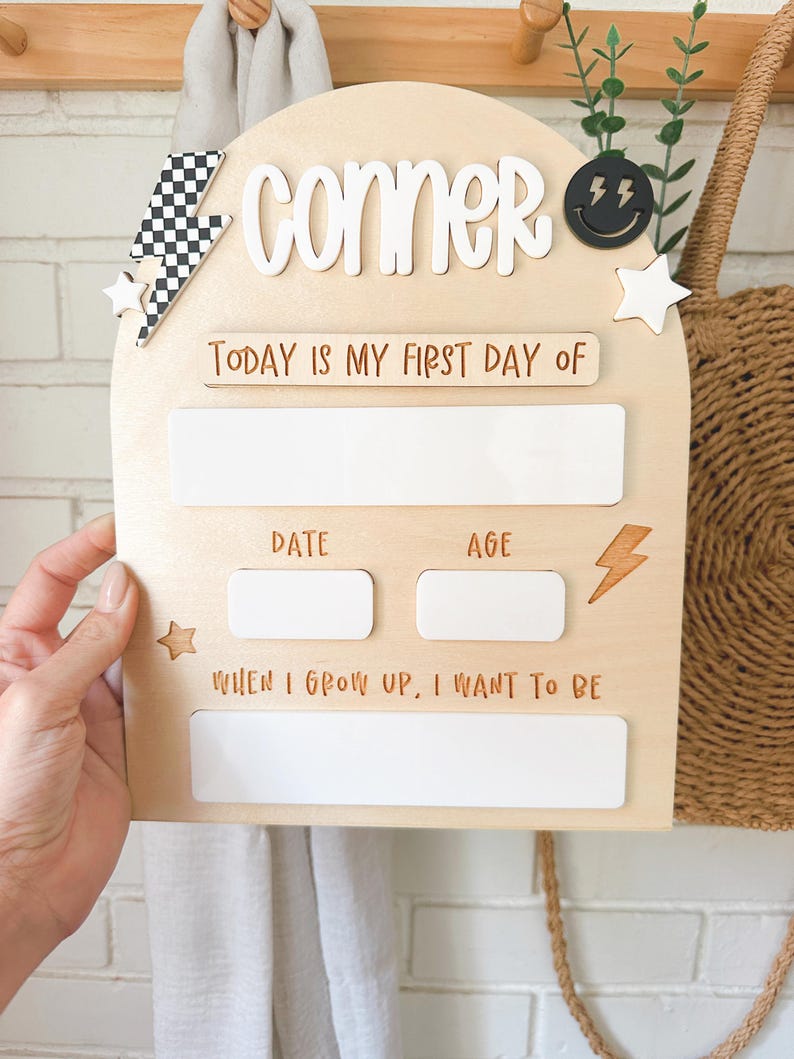 conner
TODAY IS MY FIRST DAY OF
DATE AGE
WHEN I GROW UP, I WANT TO BE